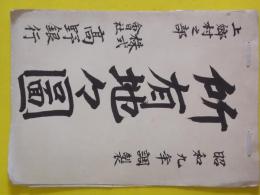 上郷村之部
株式會社 高野銀行
所有地々圖
昭和九年調製